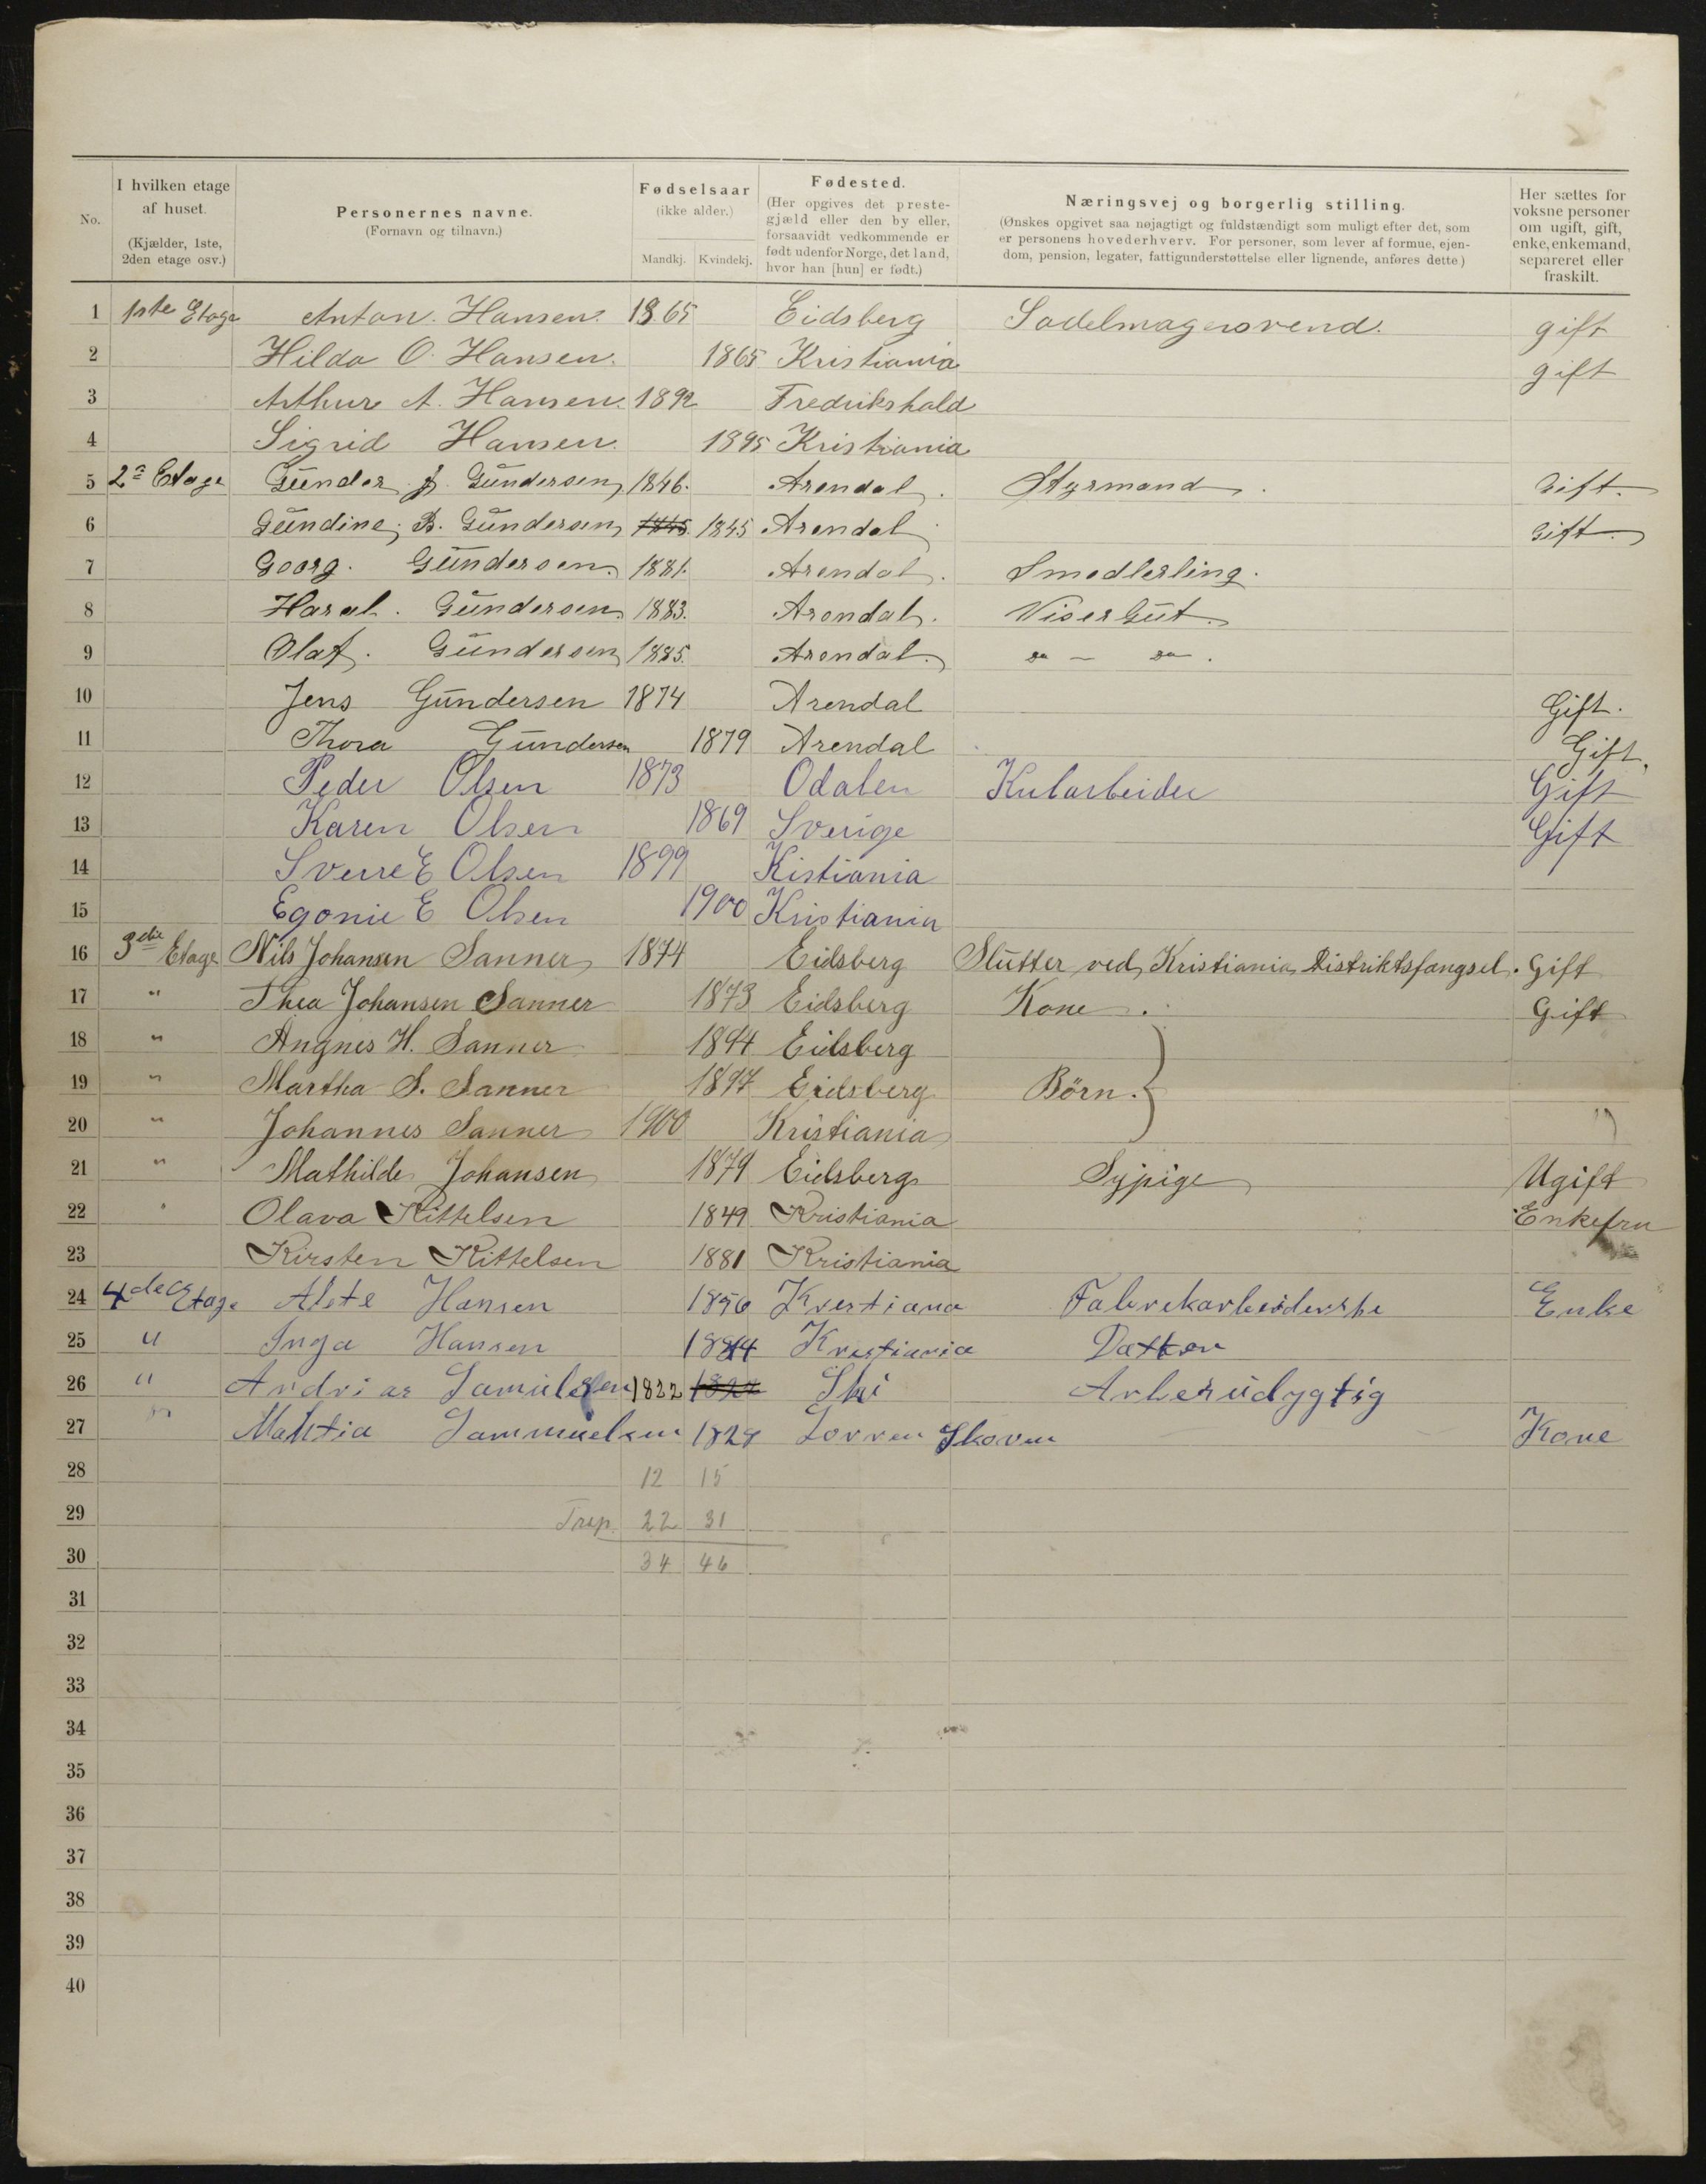 No.
I hvilken etage af huset. (Kjælder, 1ste, 2den etage osv.)
Personernes navne. (Fornavn og tilnavn.)
Fødselsaar (ikke alder.) Mandkj. Kvindekj.
Fødested. (Her opgives det prestegjæld eller den by eller, forsaavidt vedkommende er født udenfor Norge, det land, hvor han [hun] er født.)
Næringsvej og borgerlig stilling. (Ønskes opgivet saa nøjagtigt og fuldstændigt som muligt efter det, som er personens hovederhverv. For personer, som lever af formue, ejendom, pension, legater, fattigunderstøttelse eller lignende, anføres dette)
Her sættes for voksne personer om ugift, gift, enke, enkemand, separeret eller fraskilt.
1 1ste Etage Anton. Hansen. 1865 Eidsberg Sadelmagersvend. gift
2 Hilda O. Hansen. 1865 Kristiania gift
3 Arthur A. Hansen. 1892 Fredrikshald
4 Sigrid Hansen. 1895 Kristiania
5 2a Etage Gunder J. Gundersen 1846. Arendal. Styrmand. Gift.
6 Gundine, B. Gundersen 1845 1845 Arendal Gift.
7 Georg. Gundersen. 1881. Arendal. Smedlerling.
8 Haral. Gundersen. 1883. Arendal. Visergut.
9 Olaf. Gundersen 1885. Arendal. da — da.
10 Jens Gundersen 1874 Arendal Gift.
11 Thora Gundersen 1879 Arendal Gift.
12 Peder Olsen 1873 Odalen Kularbeider Gift
13 Karen Olsen 1869 Sverige Gift
14 Sverre E Olsen 1899 Kistiania
15 Egonie E Olsen 1900 Kristiania
16 3die Etage Nils Johansen Sanner 1874 Eidsberg Slutter ved Kristiania Distriktsfangsel. Gift
17 " Thea Johansen Sanner 1873 Eidsberg Kone. Gift
18 " Angnes H. Sanner 1894 Eidsberg
19 " Martha S. Sanner 1897 Eidsberg Börn.
20 " Johannes Sanner 1900 Kristiania
21 " Mathilde Johansen 1879 Eidsberg Sypige Ugift
22 " Olava Kittelsen 1849 Kristiania Enkefru
23 Kirsten Kittelsen 1881 Kristiania
24 4de Etage Alete Hansen 1856 Krestiana Fabrekarbeiderske Enke
25 " Inga Hansen 1884 Krestiania Datter
26 " Andrias Samulsen 1822 1822 Ski Arbeiudygtig
27 " Mahtia Sammuelsen 1828 Skoven Kone
28 12 15
29 Trsp. 22 31
30 34 46
31
32
33
34
35
36
37
38
39
40